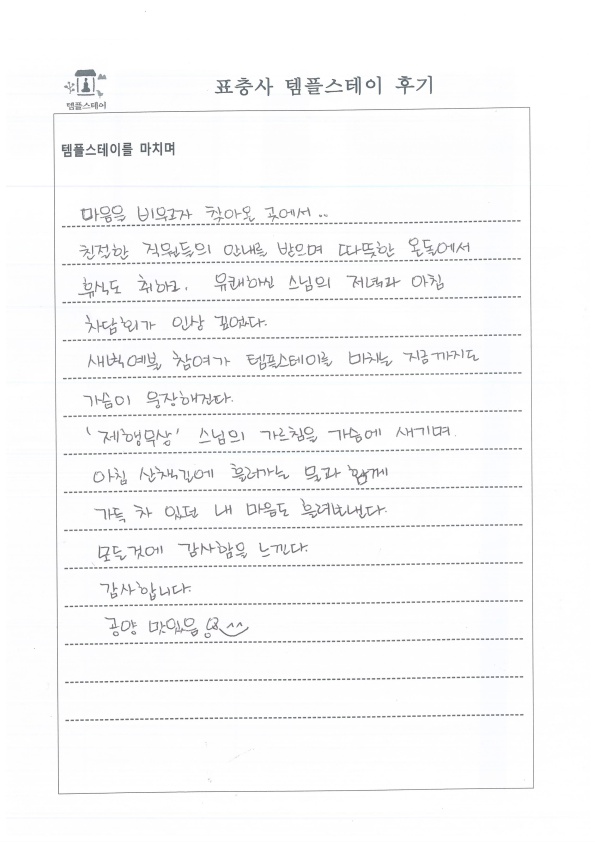 표충사 템플스테이 후기
템플스테이
템플스테이를 마치며
마음을 비우고자 찾아온 곳에서..
친절한 직원들의 안내를 받으며 따뜻한 온돌에서
휴식도 취하고, 유쾌하신 스님의 저녁과 아침
차담회가 인상 깊었다.
새벽예불 참여가 템플스테이를 마치는 지금까지도
가슴이 웅장해진다.
'제행무상' 스님의 가르침을 가슴에 새기며.
아침 산책길에 흘러가는 물과 함께
가득 차 있던 내 마음도 흘려보낸다.
모든것에 감사함을 느낀다.
감사합니다.
공양 맛있음 ^^